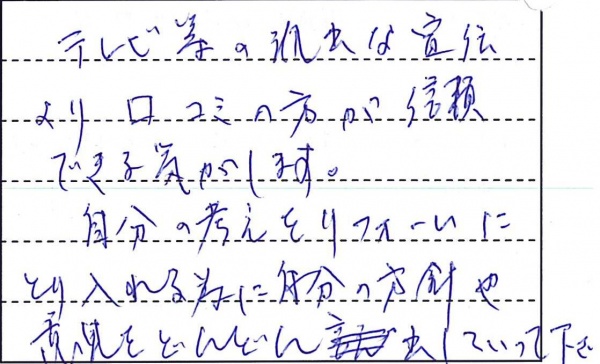 テレビ等の派出な宣伝
より口コミの方が信頼
できる気がします。
自分の考えをリフォームに
とり入れる為に自分の方針や
意見をどんどん出していって下さ